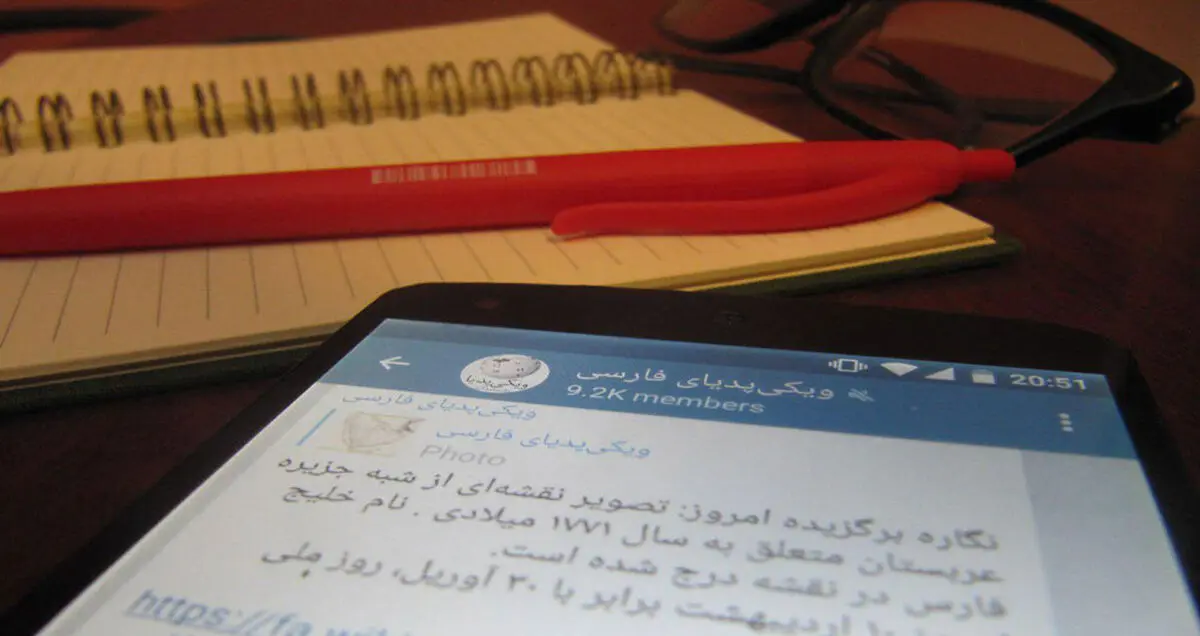 20:51
ویکی‌پدیای فارسی
9.2K members
ویکی‌پدیا
ویکی‌پدیای فارسی
ویکی‌پدیای فارسی
Photo
نگاره برگزیده امروز: تصویر نقشه‌ای از شبه جزیره
عربستان متعلق به سال ۱۷۷۱ میلادی . نام خلیج
فارس در نقشه درج شده است.
اردیبهشت برابر با ۳۰ آوریل، روز ملی
https://fa.wiki